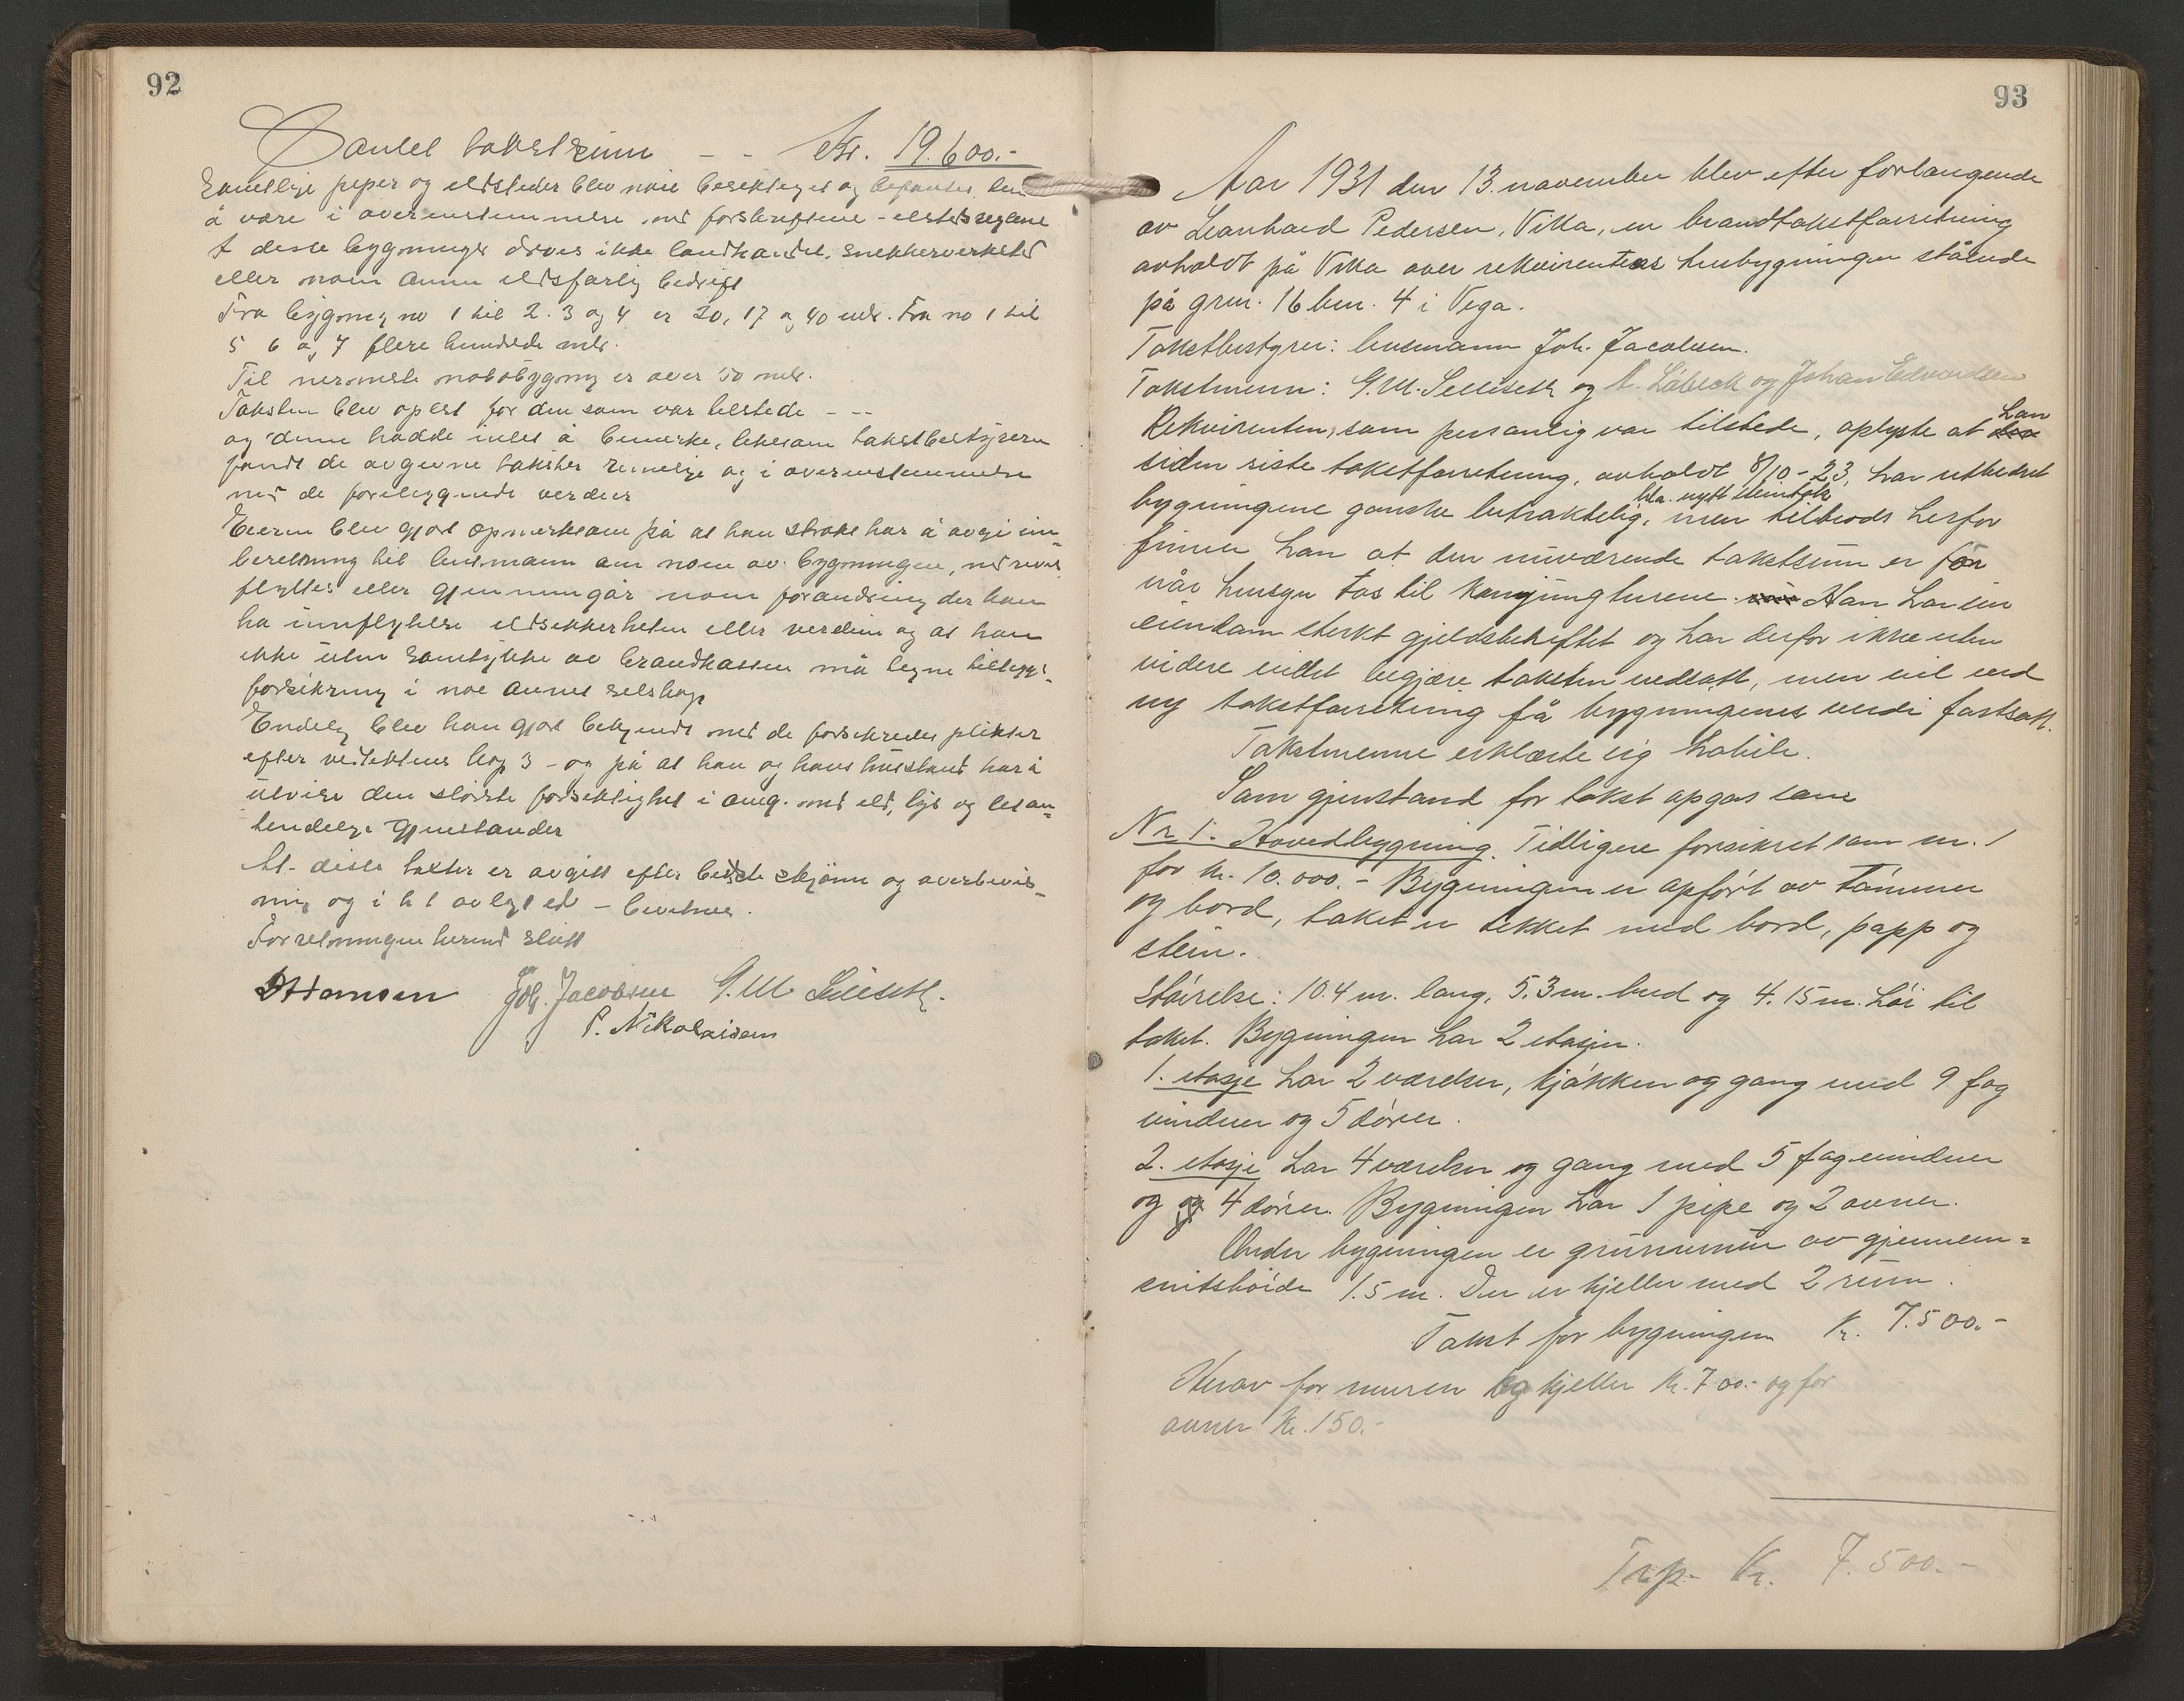 92
Samlet takstsum - - Kr. 19.600.-
Samtlige piper og ildsteder blev nøie besiktiget og befantes
å være i overenstemmelse med forskriftene
I disse bygninger drives ikke landhandel, snekkerverksted
eller noen annen ildsfarlig bedrift
Fra bygning no 1 til 2. 3 og 4 er 20, 17 og 40 mtr. Fra no 1 til
5 6 og 7 flere hundrede mtr.
Til nermeste nabobygning er over 50 mtr.
Taksten blev oplest for den som var tilstede - --
og denne hadde intet å bemerke, likesom takstbestyreren
fandt de avgivne takster rimelige og i overenstemmelse
med de foreliggende verdier
Eieren blev gjort opmerksom på at han straks har å avgi inn=
beretning til lensmann om noen av bygningen, nedrives,
flyttes eller gjennemgår noen forandring der kan
ha innflytelse ildsikkerheten eller verdien og at han
ikke uten samtykke av brandkassen må tegne tillegs=
forsikring i noe annet selskap
Endelig blev han gjort bekjendt med de forsikredes plikter
efter vedtektens kap 3 - og på at han og hans husstand har å
utvise den største forsiktighet i ang. med ild, lys og letan=
tendelige gjenstander
At disse takster er avgitt efter beste skjønn og overbevis=
ning og i h t avlagt ed - bevitnes.
Forretningen herved slutt
Hansen Joh. Jacobsen G.M. Sellseth.
P. Nikolaisen
93
Aar 1931 den 13. november blev efter forlangende
av Leonhard Pedersen, Vika, en brandtakstforretning
avholdt på Vika over rekvirentens husbygninger stående
på grnr. 16 bnr. 4 i Vega.
Takstbestyrer: lensmann Joh. Jacobsen.
Takstmenn: G.M. Sellseth og A. Løbeck og Johan Edvardsen
Rekvirenten, som personlig var tilstede, oplyste at han
siden siste takstforretning, avholdt 8/10-23, har utbedret
bygningene ganske betraktelig, bla. nytt steintak men tiltrods herfor
finner han at den nuværende takstsum er for
når hensyn tas til konjungturene. Han har sin
eiendom sterkt gjeldsbeheftet og har derfor ikke uten
videre villet begjære taksten nedsatt, men vil ved
ny takstforretning få bygningenes verdi fastsatt.
Takstmennene erklærte sig habile.
Som gjenstand for takst opgas som
Nr 1. Hovedbygning. Tidligere forsikret som nr. 1
for kr. 10.000.- Bygningen er opført av tømmer
og bord, taket er tekket med bord, papp og
stein.
Størrelse: 10.4 m. lang, 5.3 m. bred og 4.15 m. høi til
taket. Bygningen har 2 etasjer.
1. etasje har 2 værelser, kjøkken og gang med 9 fag
vinduer og 5 dører.
2. etasje har 4 værelser og gang med 5 fag vinduer
og og 4 dører. Bygningen har 1 pipe og 2 ovner.
Under bygningen er grunnmur av gjennem=
snitshøide 1.5 m. Der er kjeller med 2 rum.
Takst for bygningen Kr. 7.500.-
Herav for muren og kjeller kr. 700.- og for
ovner kr. 150.-
Trp. Kr. 7.500.-